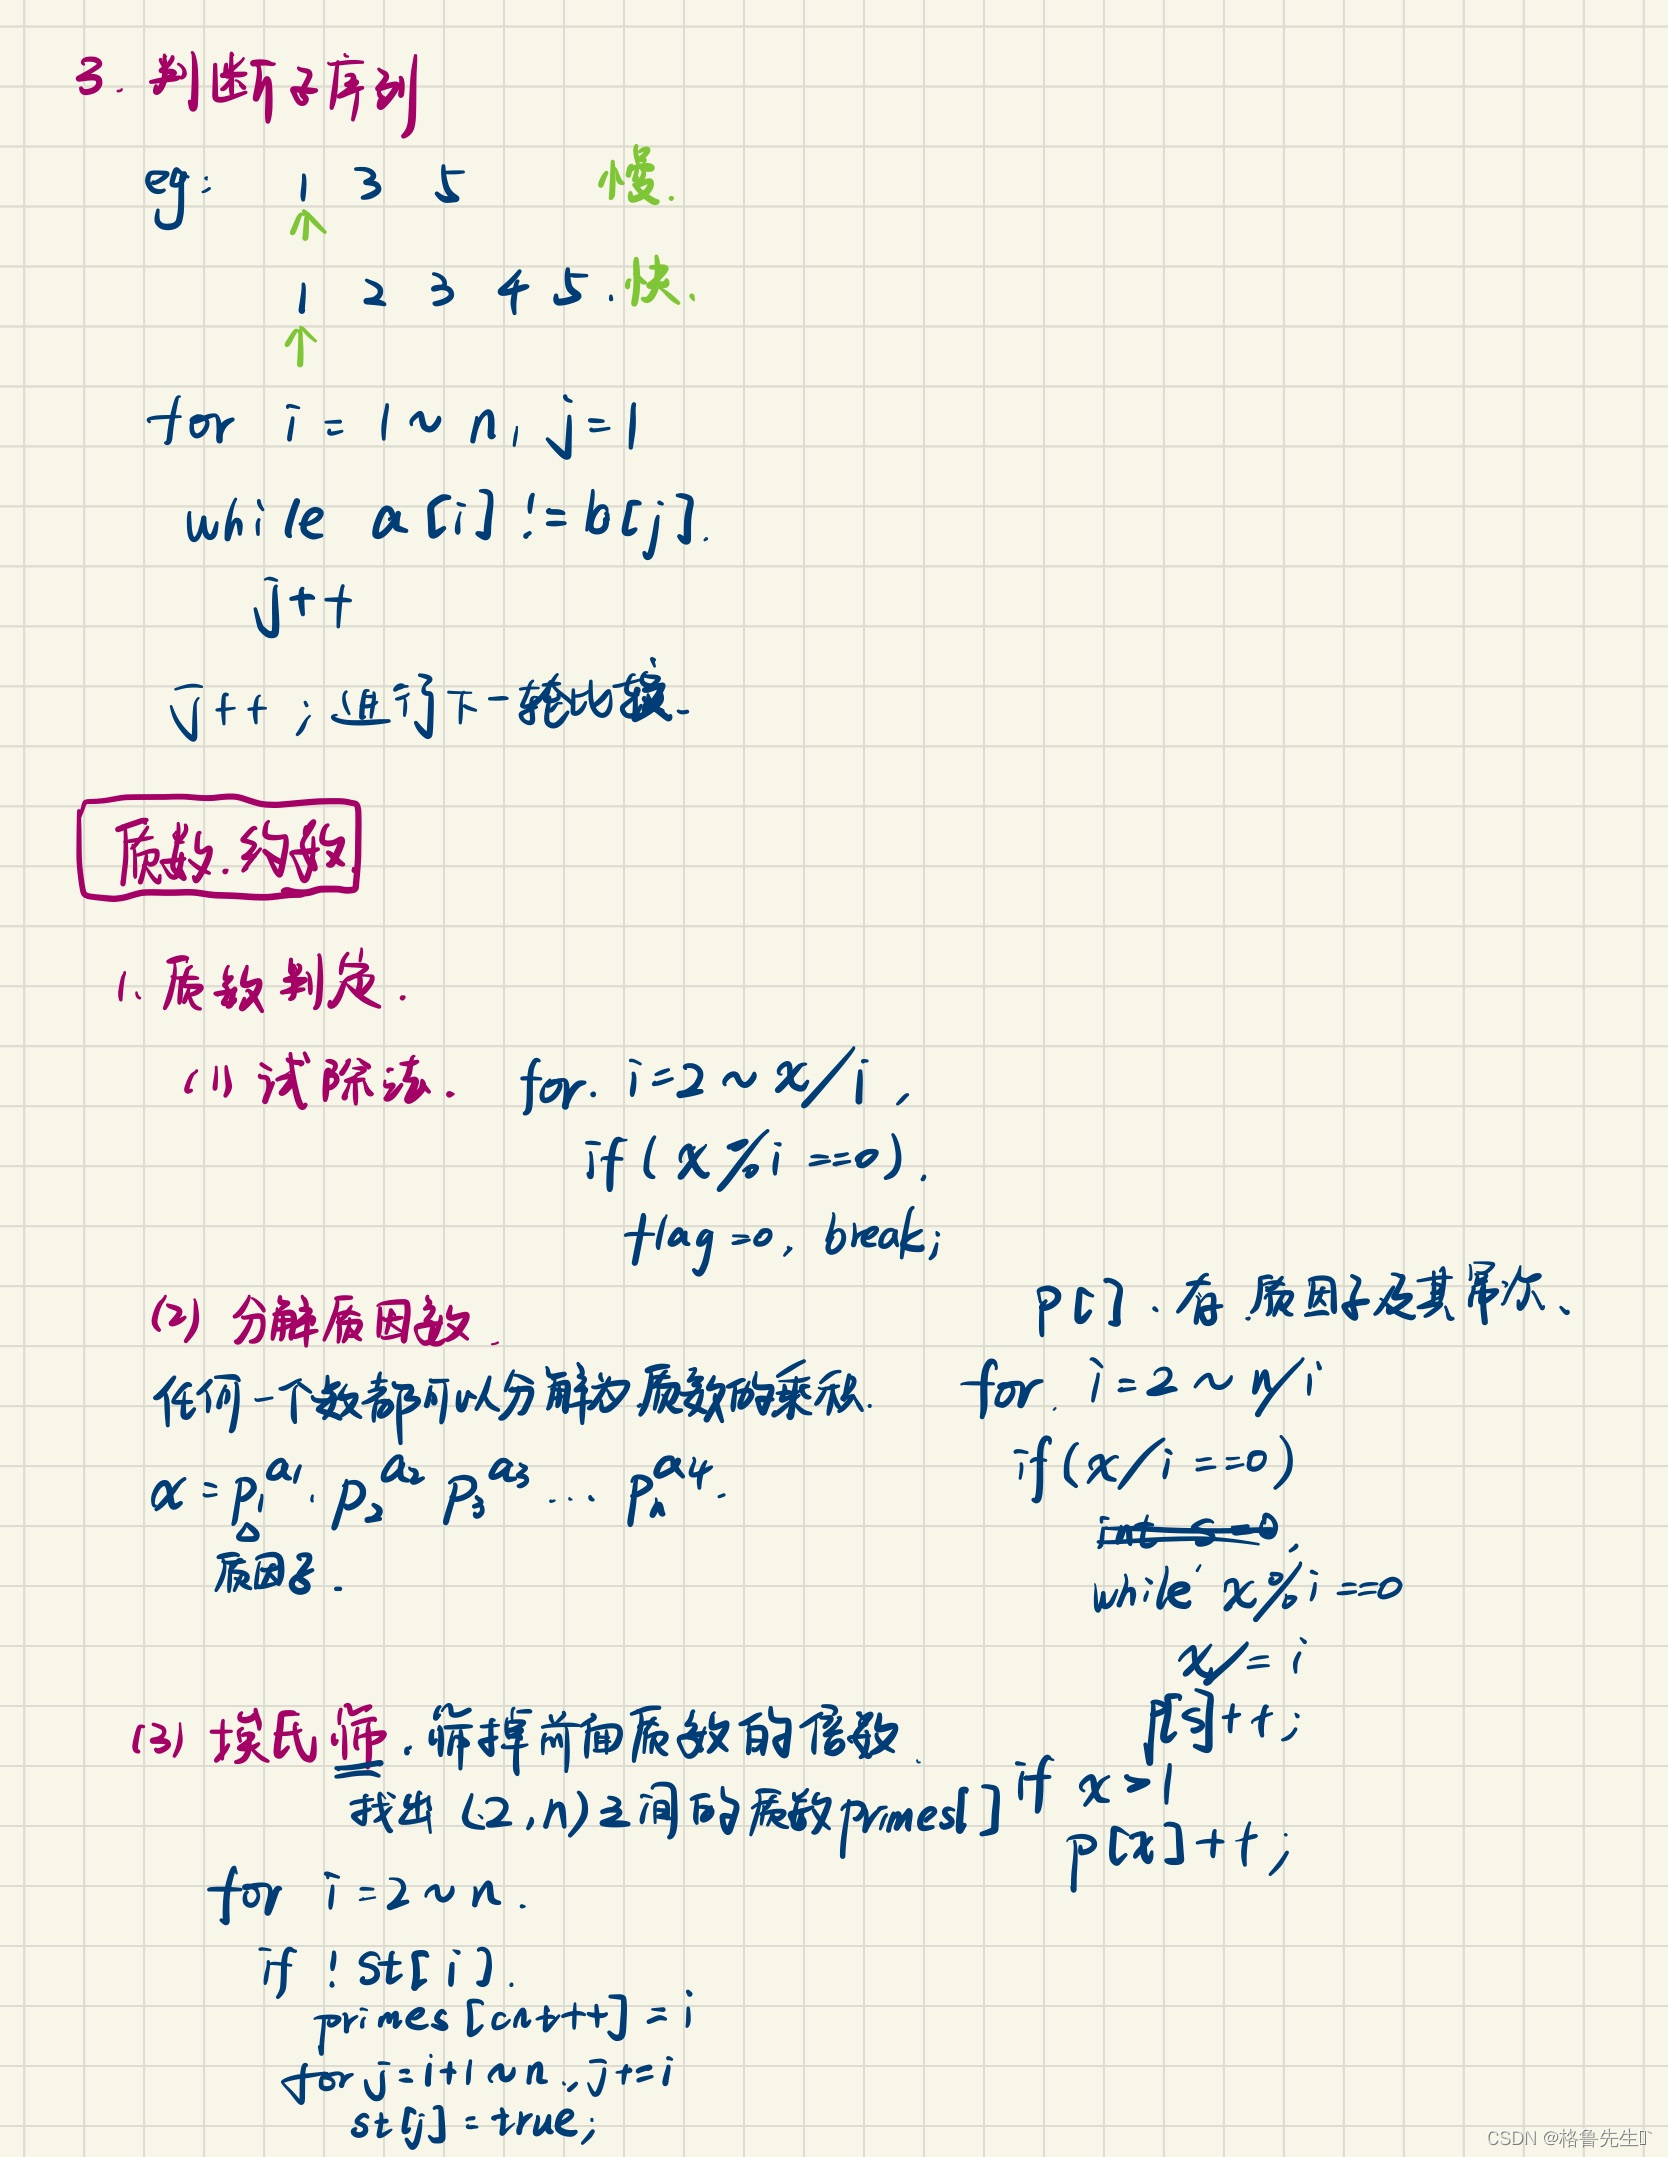 3. 判断子序列
eg: 1 3 5 慢.
1 2 3 4 5. 快.
for i = 1 ~ n, j = 1
while a[i] != b[j].
j++
j++ ; 进行下一轮比较.
质数.约数
1. 质数判定.
(1) 试除法. for. i=2 ~ x/i ,
if ( x % i ==0).
flag =0, break;
(2) 分解质因数.
任何一个数都可以分解为质数的乘积.
x = p₁^a₁ . p₂^a₂ p₃^a₃ ... pₙ^a₄.
质因子.
p[]. 存 质因子及其幂次、
for. i = 2 ~ n/i
if (x / i ==0)
int s = 0,
while x % i ==0
x / = i
p[s]++;
if x > 1
p[x]++;
(3) 埃氏筛. 筛掉前面质数的倍数.
找出 (2, n) 之间的质数 primes[]
for i = 2 ~ n.
if ! st[i].
primes [cnt++] = i
for j = i+1 ~ n., j += i
st[j] = true;
CSDN @格鲁先生